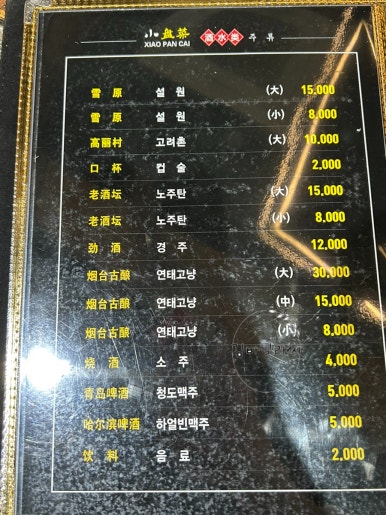 小盘菜 酒水类 주류
XIAO PAN CAI
雪原 설원 (大) 15,000
雪原 설원 (小) 8,000
高丽村 고려촌 (大) 10,000
口杯 컵술 2,000
老酒坛 노주탄 (大) 15,000
老酒坛 노주탄 (小) 8,000
劲酒 경주 12,000
烟台古酿 연태고냥 (大) 30,000
烟台古酿 연태고냥 (中) 15,000
烟台古酿 연태고냥 (小) 8,000
烧酒 소주 4,000
青岛啤酒 청도맥주 5,000
哈尔滨啤酒 하얼빈맥주 5,000
饮料 음료 2,000